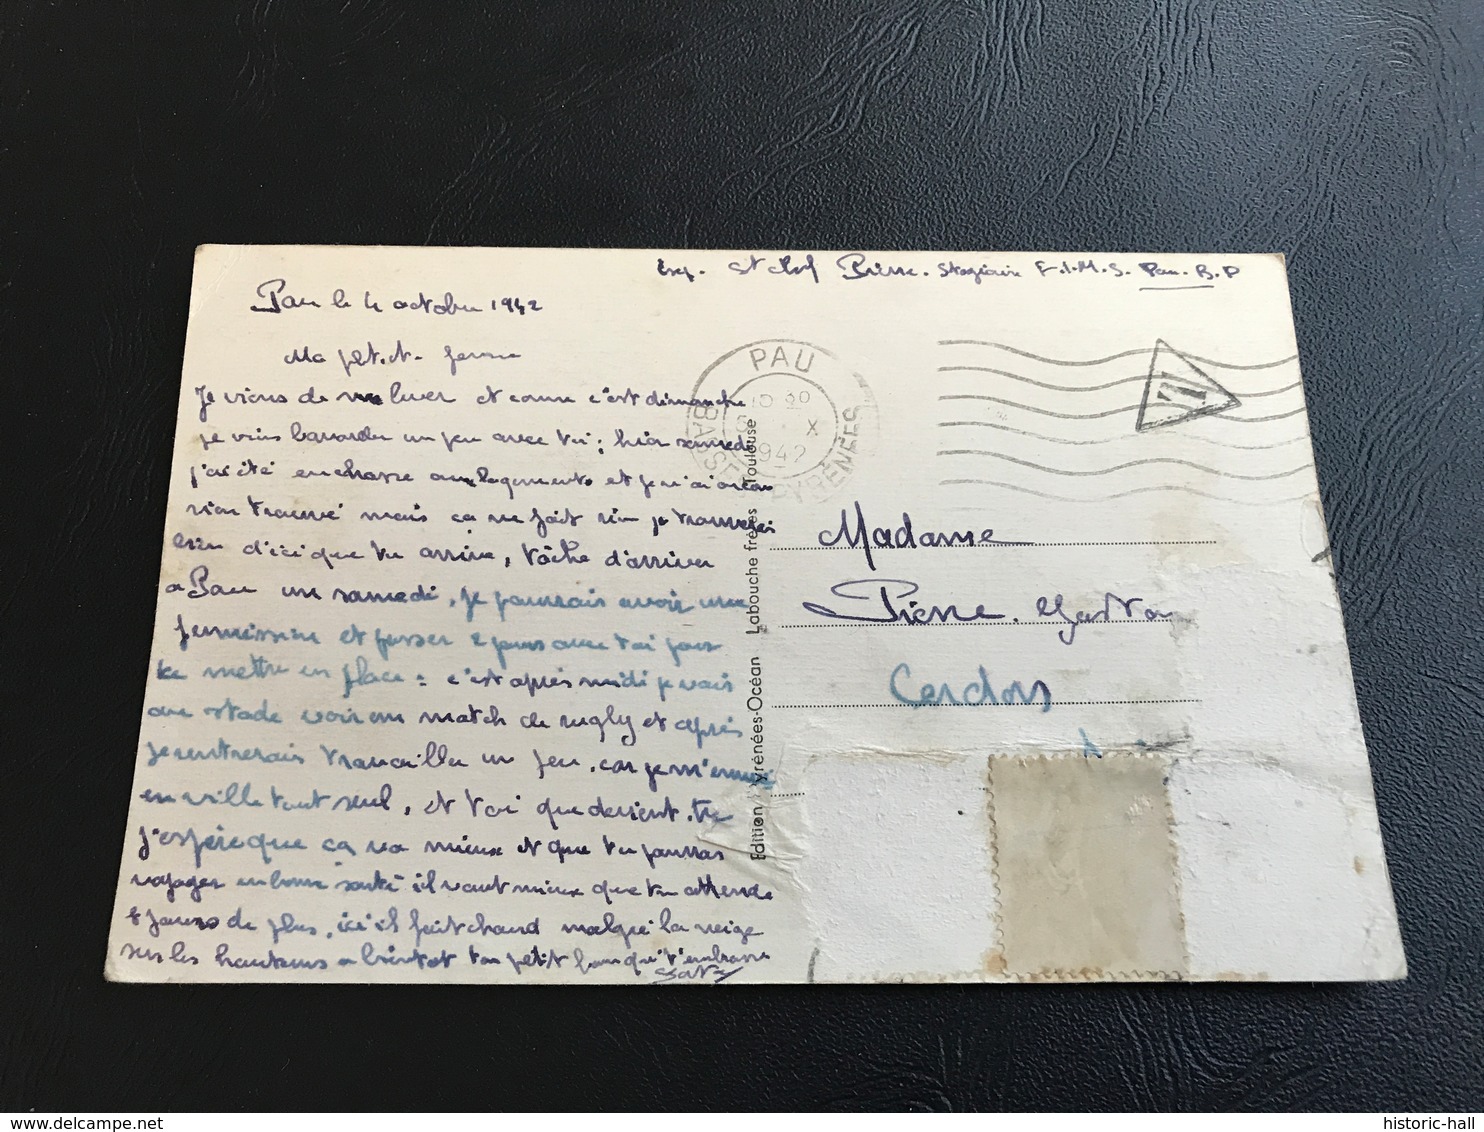 Exp. St Chef Pierre. Stagiaire E.I.M.S. Pau. B.P
Pau le 4 octobre 1942
Ma petite femme
Je viens de me lever et comme c'est dimanche
je viens bavarder un peu avec toi; hier samedi
j'ai été en chasse aux logements et je n'ai encore
rien trouvé mais ça ne fait rien je trouverai
bien d'ici que tu arrive, tâche d'arriver
a Pau un samedi, je pourrais avoir une
permission et passer 2 jours avec toi pour
te mettre en place: cet après midi je vais
au stade voir un match de rugby et après
je rentrerais travailler un peu, car je m'ennuie
en ville tout seul, et toi que devient tu
j'espère que ça va mieux et que tu pourras
voyager en bonne santé il vaut mieux que tu attende
8 jours de plus, ici il fait chaud malgré la neige
sur les hauteurs a bientot ton petit homme qui t'embrasse
Gaston
PAU
BASSES PYRÉNÉES
X
1942
Edition Pyrénées-Océan Labouche frères Toulouse
Madame
Pierre Gaston
Cerdon